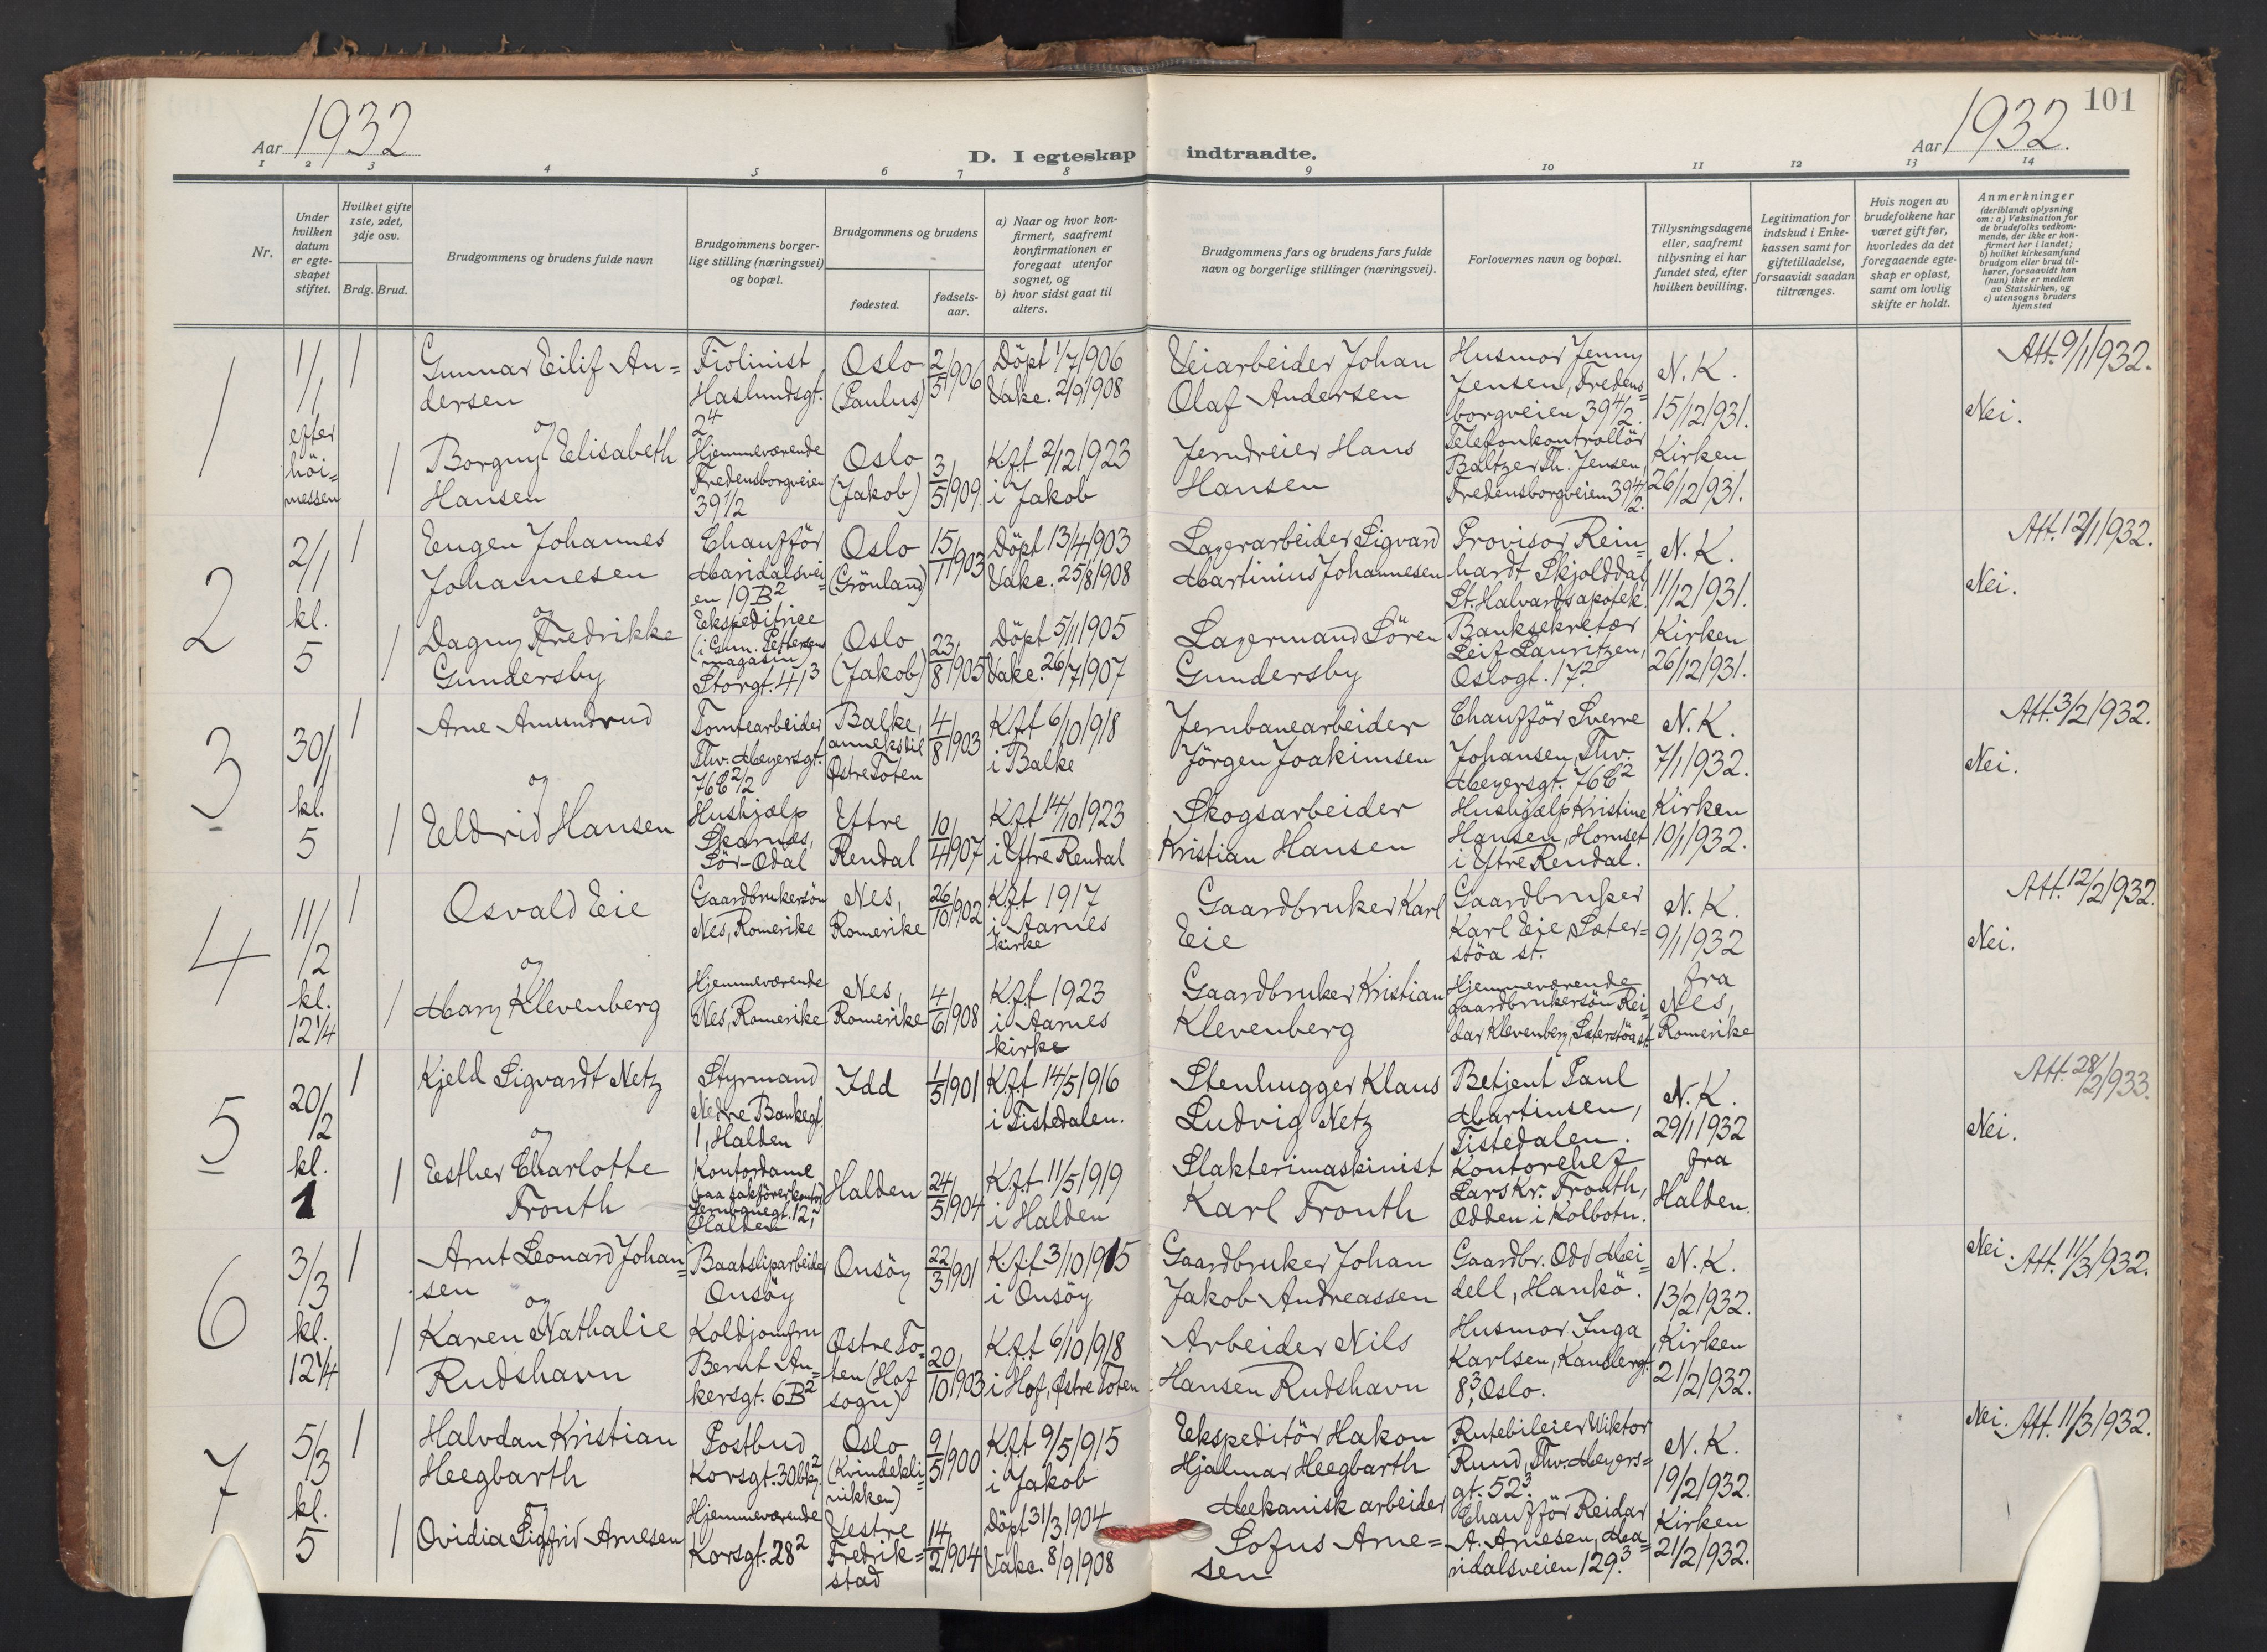 Aar 1932
D. I egteskap indtraadte.
Aar 1932.
101
1 2 3 4 5 6 7 8 9 10 11 12 13 14
Nr.
Under
hvilken
datum
er egte-
skapet
stiftet.
Hvilket gifte
1ste, 2det,
3dje osv.
Brdg. Brud.
Brudgommens og brudens fulde navn
Brudgommens borger-
lige stilling (næringsvei)
og bopæl.
Brudgommens og brudens
fødested.
fødsels-
aar.
a) Naar og hvor kon-
firmert, saafremt
konfirmationen er
foregaat utenfor
sognet, og
b) hvor sidst gaat til
alters.
Brudgommens fars og brudens fars fulde
navn og borgerlige stillinger (næringsvei).
Forlovernes navn og bopæl.
Tillysningsdagene
eller, saafremt
tillysning ei har
fundet sted, efter
hvilken bevilling.
Legitimation for
indskud i Enke-
kassen samt for
giftetilladelse,
forsaavidt saadan
tiltrænges.
Hvis nogen av
brudefolkene har
været gift før,
hvorledes da det
foregaaende egte-
skap er opløst,
samt om lovlig
skifte er holdt.
Anmerkninger
(deriblandt oplysning
om: a) Vaksination for
de brudefolks vedkom-
mende, der ikke er kon-
firmert her i landet;
b) hvilket kirkesamfund
brudgom eller brud til-
hører, forsaavidt han
(hun) ikke er medlem
av Statskirken, og
c) utensogns bruders
hjemsted
1
1/1
efter
höi=
messen
1
Gunnar Eilif An=
dersen
og
Fiolinist
Haslundsgt.
24
Oslo
(Paulus)
2/5 1906
Döpt 1/7 1906
Vakc. 2/9 1908
Veiarbeider Johan
Olaf Andersen
Husmor Jenny
Jensen, Fredens=
borgveien 39 4/2.
N. K.
15/12 1931.
Nei.
Att. 9/1 1932.
1
Borgny Elisabeth
Hansen
Hjemmeværende
Fredensborgveien
39 1/2
Oslo
(Jakob)
3/5 1909.
Kft 2/12 1923
i Jakob
Jerndreier Hans
Hansen
Telefonkontrollör
Baltzer Th. Jensen,
Fredensborgveien 39 4/2.
Kirken
26/12 1931.
2
2/1
kl.
5
1
Eugen Johannes
Johannesen
og
Chaufför
Maridalsvei=
en 19 B 2
Oslo
(Grönland)
15/1 1903
Döpt 13/4 1903
Vakc. 25/8 1908
Lagerarbeider Sigvard
Martinius Johannesen
Provisor Rein=
hardt Skjolddal,
St. Halvards apotek.
N. K.
11/12 1931.
Nei.
Att. 12/1 1932.
1
Dagny Fredrikke
Gundersby
Ekspeditrice
(i Gun. Pettersens
magasin)
Storgt. 41 3
Oslo
(Jakob)
23/8 1905
Döpt 5/11 1905
Vakc. 26/7 1907
Lagermand Sören
Gundersby
Banksekretær
Leif Lauritzen,
Oslogt. 17 2.
Kirken
26/12 1931.
3
30/1
kl.
5
1
Arne Amundrud
og
Tomtearbeider
Thv. Meyersgt.
76 C 2/2
Balke,
anneks til
Östre Toten
4/8 1903
Kft 6/10 1918
i Balke
Jernbanearbeider
Jörgen Joakimsen
Chaufför Sverre
Johansen, Thv.
Meyersgt. 76 C 2
N. K.
7/1 1932.
Nei.
Att. 3/2 1932.
1
Eldrid Hansen
Hushjælp
Skarnes,
Sör-Odal
Ytre
Rendal
10/4 1907
Kft 14/10 1923
i Ytre Rendal
Skogsarbeider
Kristian Hansen
Hushjælp Kristine
Hansen, Hornset
i Ytre Rendal.
Kirken
10/1 1932.
4
11/2
kl.
12 1/4
1
Osvald Eie
og
Gaardbrukersön
Nes, Romerike
Nes,
Romerike
26/10 1902
Kft 1917
i Aarnes
kirke
Gaardbruker Karl
Eie
Gaardbruker
Karl Eie, Sæter=
stöa st.
N. K.
9/1 1932
Nei.
Att. 12/2 1932.
1
Mary Klevenberg
Hjemmeværende
Nes, Romerike
Nes,
Romerike
4/6 1908
Kft 1923
i Aarnes
kirke
Gaardbruker Kristian
Klevenberg
Hjemmeværende
gaardbrukersön Rei=
dar Klevenberg, Sæterstöa st.
fra
Nes,
Romerike
5
20/2
kl.
1
1
Kjeld Sigvardt Netz
og
Styrmand
Nedre Bankegt.
1, Halden
Idd
1/5 1901
Kft 14/5 1916
i Tistedalen.
Stenhugger Klaus
Ludvig Netz
Betjent Paul
Martinsen,
Tistedalen.
N. K.
29/1 1932
Nei.
Att. 28/2 1933.
1
Esther Charlotte
Fronth
Kontordame
(paa sakförerkontor)
12,
Halden
Halden
24/5 1904
Kft 11/5 1919
i Halden
Slakterimaskinist
Karl Fronth
Kontorchef
Lars Kr. Fronth,
Odden i Kolbotn.
fra
Halden.
6
3/3
kl.
12 1/4
1
Arnt Leonard Johan=
sen
og
Baatsliparbeider
Onsöy
Onsöy
22/3 1901
Kft 3/10 1915
i Onsöy
Gaardbruker Johan
Jakob Andreassen
Gaardbr. Odd Mei=
dell, Hankö.
N. K.
13/2 1932.
Nei.
Att. 11/3 1932.
1
Karen Nathalie
Rudshavn
Koldjomfru
Bernt An=
kersgt. 6 B 2
Østre To=
ten (Hof
sogn)
20/10 1903
Kft 6/10 1918
i Hof, Østre Toten
Arbeider Nils
Hansen Rudshavn
Husmor Inga
Karlsen, Kanslergt.
8 3, Oslo.
Kirken
21/2 1932.
7
5/3
kl.
5
1
Halvdan Kristian
Heegbarth
og
Postbud
Korsgt. 30 bkg. 2
Oslo
(Kvindekli=
nikken)
9/5 1900
Kft 9/5 1915
i Jakob
Ekspeditör Hakon
Hjalmar Heegbarth
Rutebileier Wiktor
Rund, Thv. Meyers=
gt. 52 3.
N. K.
19/2 1932.
Nei.
Att. 11/3 1932.
1
Ovidia Sigfrid Arnesen
Hjemmeværende
Korsgt. 28 2
Vestre
Fredrik=
stad
14/2 1904
Döpt 31/3 1904
Vakc. 8/9 1908
Mekanisk arbeider
Sofus Arne=
sen
Chaufför Reidar
A. Arnesen, Ma=
ridalsveien 129 3.
Kirken
21/2 1932.